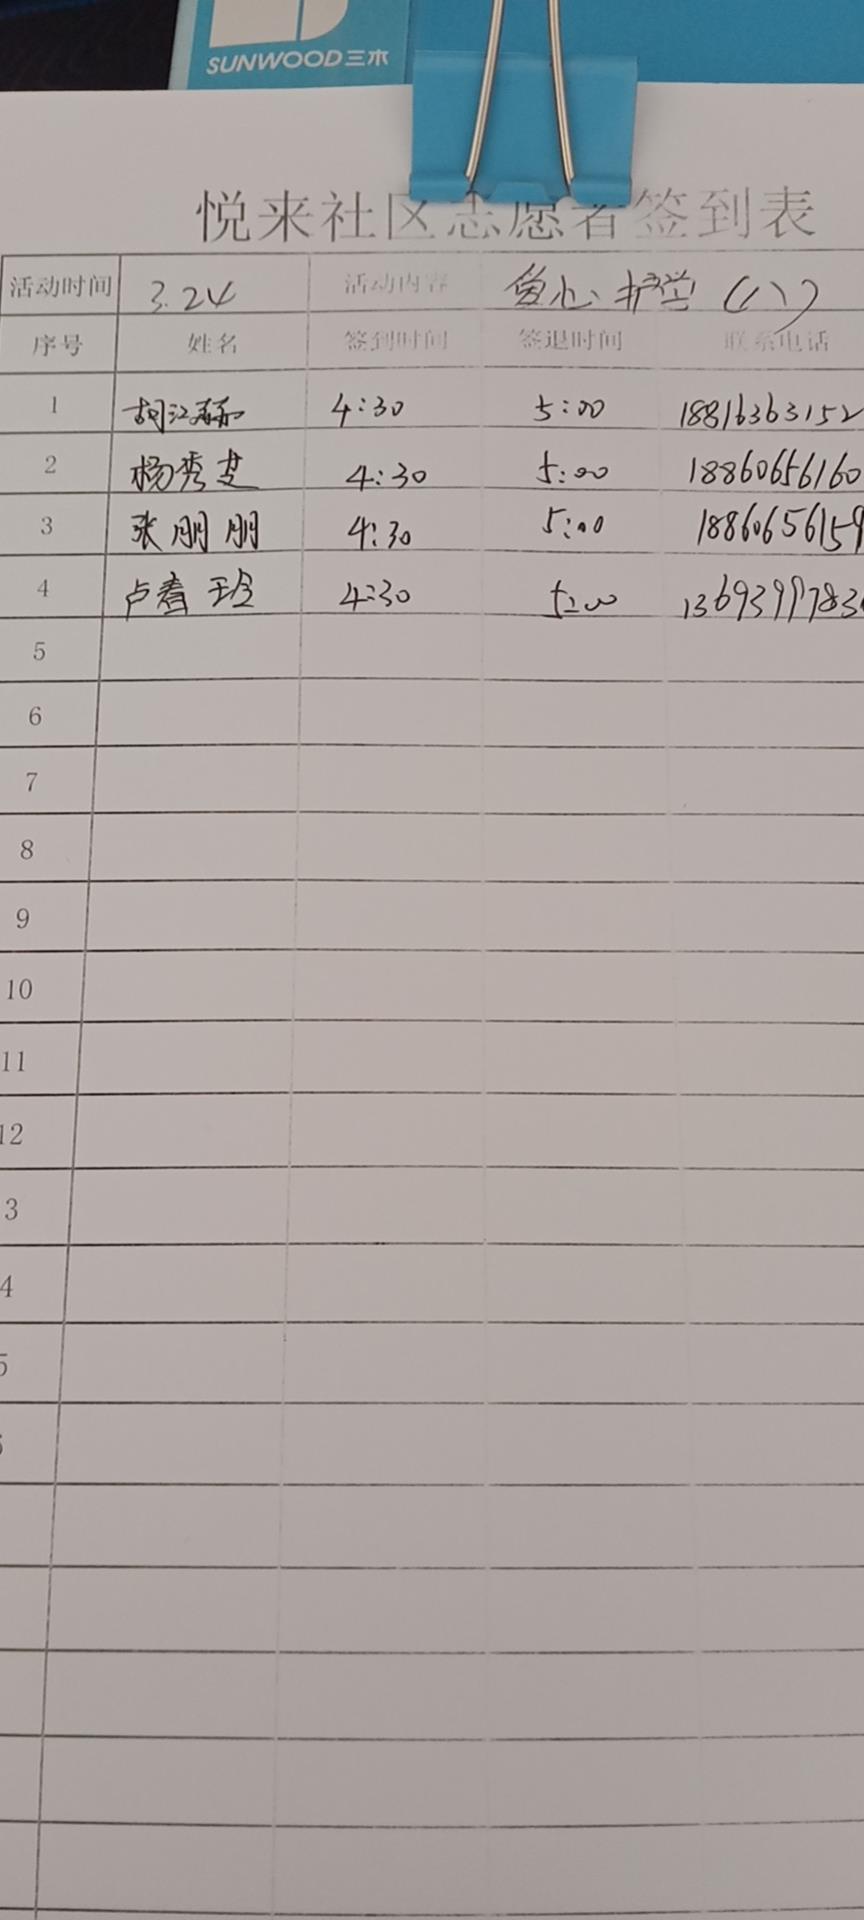 SUNWOOD三木
悦来社区志愿者签到表
活动时间 3.24 活动内容 护学(八)
序号 姓名 签到时间 签退时间 联系电话
1 胡江 4:30 5:00 18816363152
2 杨秀芝 4:30 5:00 18860656160
3 张朋朋 4:30 5:00 18860656159
4 卢春玲 4:30 5:00
5
6
7
8
9
10
11
12
3
4
5